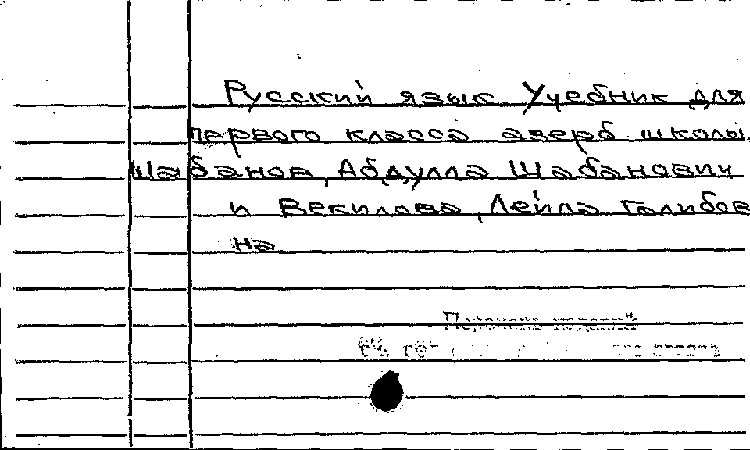 Русский язык Учебник для
первого класса азерб школы.
Шабанов, Абдулла Шабанович
и Векилова, Лейла Галибов
на